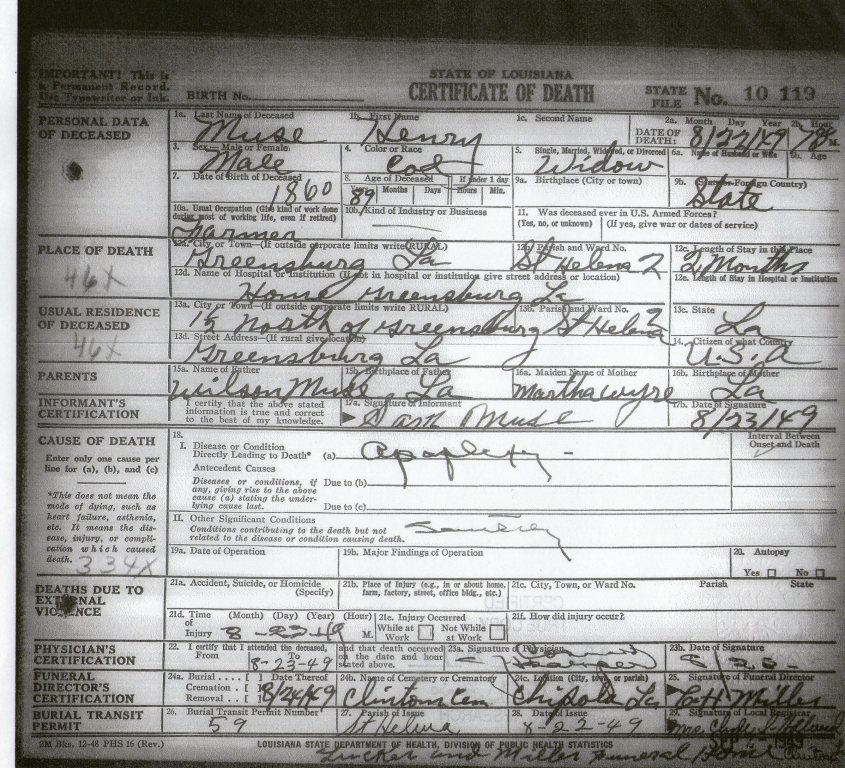 STATE OF LOUISIANA
CERTIFICATE OF DEATH
IMPORTANT! This is
a Permanent Record.
Use Typewriter or Ink.
BIRTH No.
STATE FILE No. 10 119
PERSONAL DATA OF DECEASED
1a. Last Name of Deceased Muse
1b. First Name Henry
1c. Second Name
2a. Month Day Year
DATE OF DEATH: 8/22/49
2b. Hour M.
3. Sex—Male or Female Male
4. Color or Race Col
5. Single, Married, Widowed, or Divorced Widow
6a. Name of Husband or Wife
6b. Age
7. Date of Birth of Deceased 1860
8. Age of Deceased 89 Months Days
If under 1 day Hours Min.
9a. Birthplace (City or town)
9b. (State or Foreign Country) State
10a. Usual Occupation (Give kind of work done during most of working life, even if retired) Farmer
10b. Kind of Industry or Business
11. Was deceased ever in U.S. Armed Forces?
(Yes, no, or unknown) (If yes, give war or dates of service)
PLACE OF DEATH
46X
12a. City or Town—(If outside corporate limits write RURAL) Greensburg La
12b. Parish and Ward No. St Helena 2
12c. Length of Stay in this Place 2 Months
12d. Name of Hospital or Institution (If not in hospital or institution give street address or location) Home Greensburg La
12e. Length of Stay in Hospital or Institution
USUAL RESIDENCE OF DECEASED
46X
13a. City or Town—(If outside corporate limits write RURAL) 1½ North of Greensburg
13b. Parish and Ward No. St Helena 2
13c. State La
13d. Street Address—(If rural give location) Greensburg La
14. Citizen of what Country U.S.A
PARENTS
15a. Name of Father Wilson Muse
15b. Birthplace of Father La
16a. Maiden Name of Mother Martha Wyre
16b. Birthplace of Mother La
INFORMANT'S CERTIFICATION
I certify that the above stated
information is true and correct
to the best of my knowledge.
17a. Signature of Informant Muse
17b. Date of Signature 8/23/49
CAUSE OF DEATH
Enter only one cause per
line for (a), (b), and (c)
*This does not mean the
mode of dying, such as
heart failure, asthenia,
etc. It means the disease,
injury, or complication
which caused
death.
334X
18.
I. Disease or Condition
Directly Leading to Death* (a) Apoplexy
Interval Between
Onset and Death
Antecedent Causes
Diseases or conditions, if
any, giving rise to the above
cause (a) stating the underlying
cause last.
Due to (b)
Due to (c)
II. Other Significant Conditions
Conditions contributing to the death but not
related to the disease or condition causing death.
19a. Date of Operation
19b. Major Findings of Operation
20. Autopsy
Yes No
DEATHS DUE TO EXTERNAL VIOLENCE
21a. Accident, Suicide, or Homicide
(Specify)
21b. Place of Injury (e.g., in or about home,
farm, factory, street, office bldg., etc.)
21c. City, Town, or Ward No. Parish State
21d. Time of Injury (Month) (Day) (Year) (Hour) M.
21e. Injury Occurred
While at Work
Not While at Work
21f. How did injury occur?
PHYSICIAN'S CERTIFICATION
22. I certify that I attended the deceased,
From To 8-23-49
and that death occurred
on the date and hour
stated above.
23a. Signature of Physician
23b. Date of Signature
FUNERAL DIRECTOR'S CERTIFICATION
24a. Burial [ ] Date Thereof
Cremation [ ] 8/24/49
Removal [ ]
24b. Name of Cemetery or Crematory Clinton Cem
24c. Location (City, town, or parish) La
25. Signature of Funeral Director Miller
BURIAL TRANSIT PERMIT
26. Burial Transit Permit Number 59
27. Parish of Issue St Helena
28. Date of Issue 8-22-49
29. Signature of Local Registrar
2M Bks. 12-48 PHS 16 (Rev.)
LOUISIANA STATE DEPARTMENT OF HEALTH, DIVISION OF PUBLIC HEALTH STATISTICS
Tucker and Miller Funeral Home Clinton